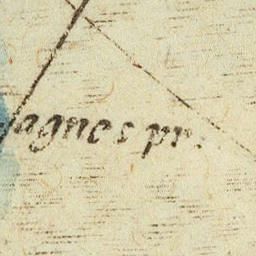 yagnes pr.